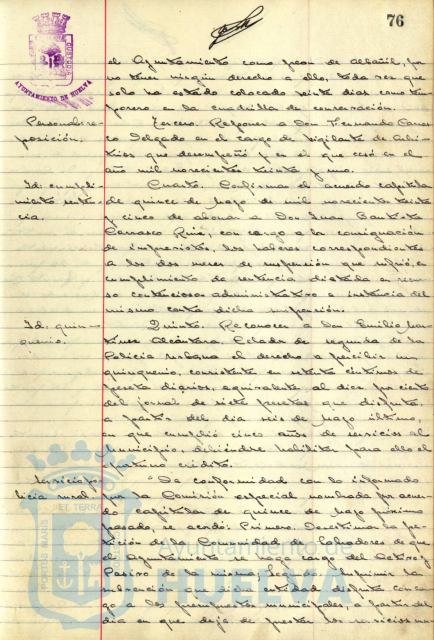 76
AYUNTAMIENTO DE HUELVA
el Ayuntamiento como peon de Albañil, por
no tener ningún derecho a ello, toda vez que
solo ha estado colocado veinte dias como tem-
porero en la cuadrilla de conservación.
Personal: re-
posición.
Tercero. Reponer a Don Fernando Carras-
co Delgado en el cargo de vigilante de Arbi-
trios que desempeñó y en el que cesó en el
año mil novecientos treinta y uno.
Id: cumpli-
miento senten-
cia.
Cuarto. Confirmar el acuerdo capitular
de quince de Mayo de mil novecientos treinta
y cinco de abonar a Don Juan Bautista
Carrasco Ruiz, con cargo a la consignación
de imprevistos, los haberes correspondientes
a los dos meses de suspensión que sufrió, en
cumplimiento de sentencia dictada en recur-
so contencioso administrativo a instancia del
mismo contra dicha suspensión.
Id: quin-
quenio.
Quinto. Reconocer a Don Emilio Mar-
tinez Alcántara, Celador de segunda de la
Policia Urbana el derecho a percibir un
quinquenio, consistente en setenta céntimos de
peseta diarios, equivalente al diez por ciento
del jornal de siete pesetas que disfruta,
a partir del dia seis de Mayo último,
en que cumplió cinco años de servicios al
Municipio, debiéndose habilitar para ello el
oportuno crédito.
Servicio po-
licia rural.
De conformidad con lo informado
por la Comisión especial nombrada por acuer-
do capitular de quince de Mayo próximo
pasado, se acordó: Primero. Desestimar la pe-
tición de la Comunidad de Labradores de que
el Ayuntamiento se haga cargo del Activo y
Pasivo de la misma; Segundo. Suprimir la
subvención que dicha entidad disfruta con car-
go a los presupuestos municipales, a partir del
dia en que deje de prestar los servicios en-
PORTUS MARIS ET TERRAE
Ayuntamiento de
HUELVA